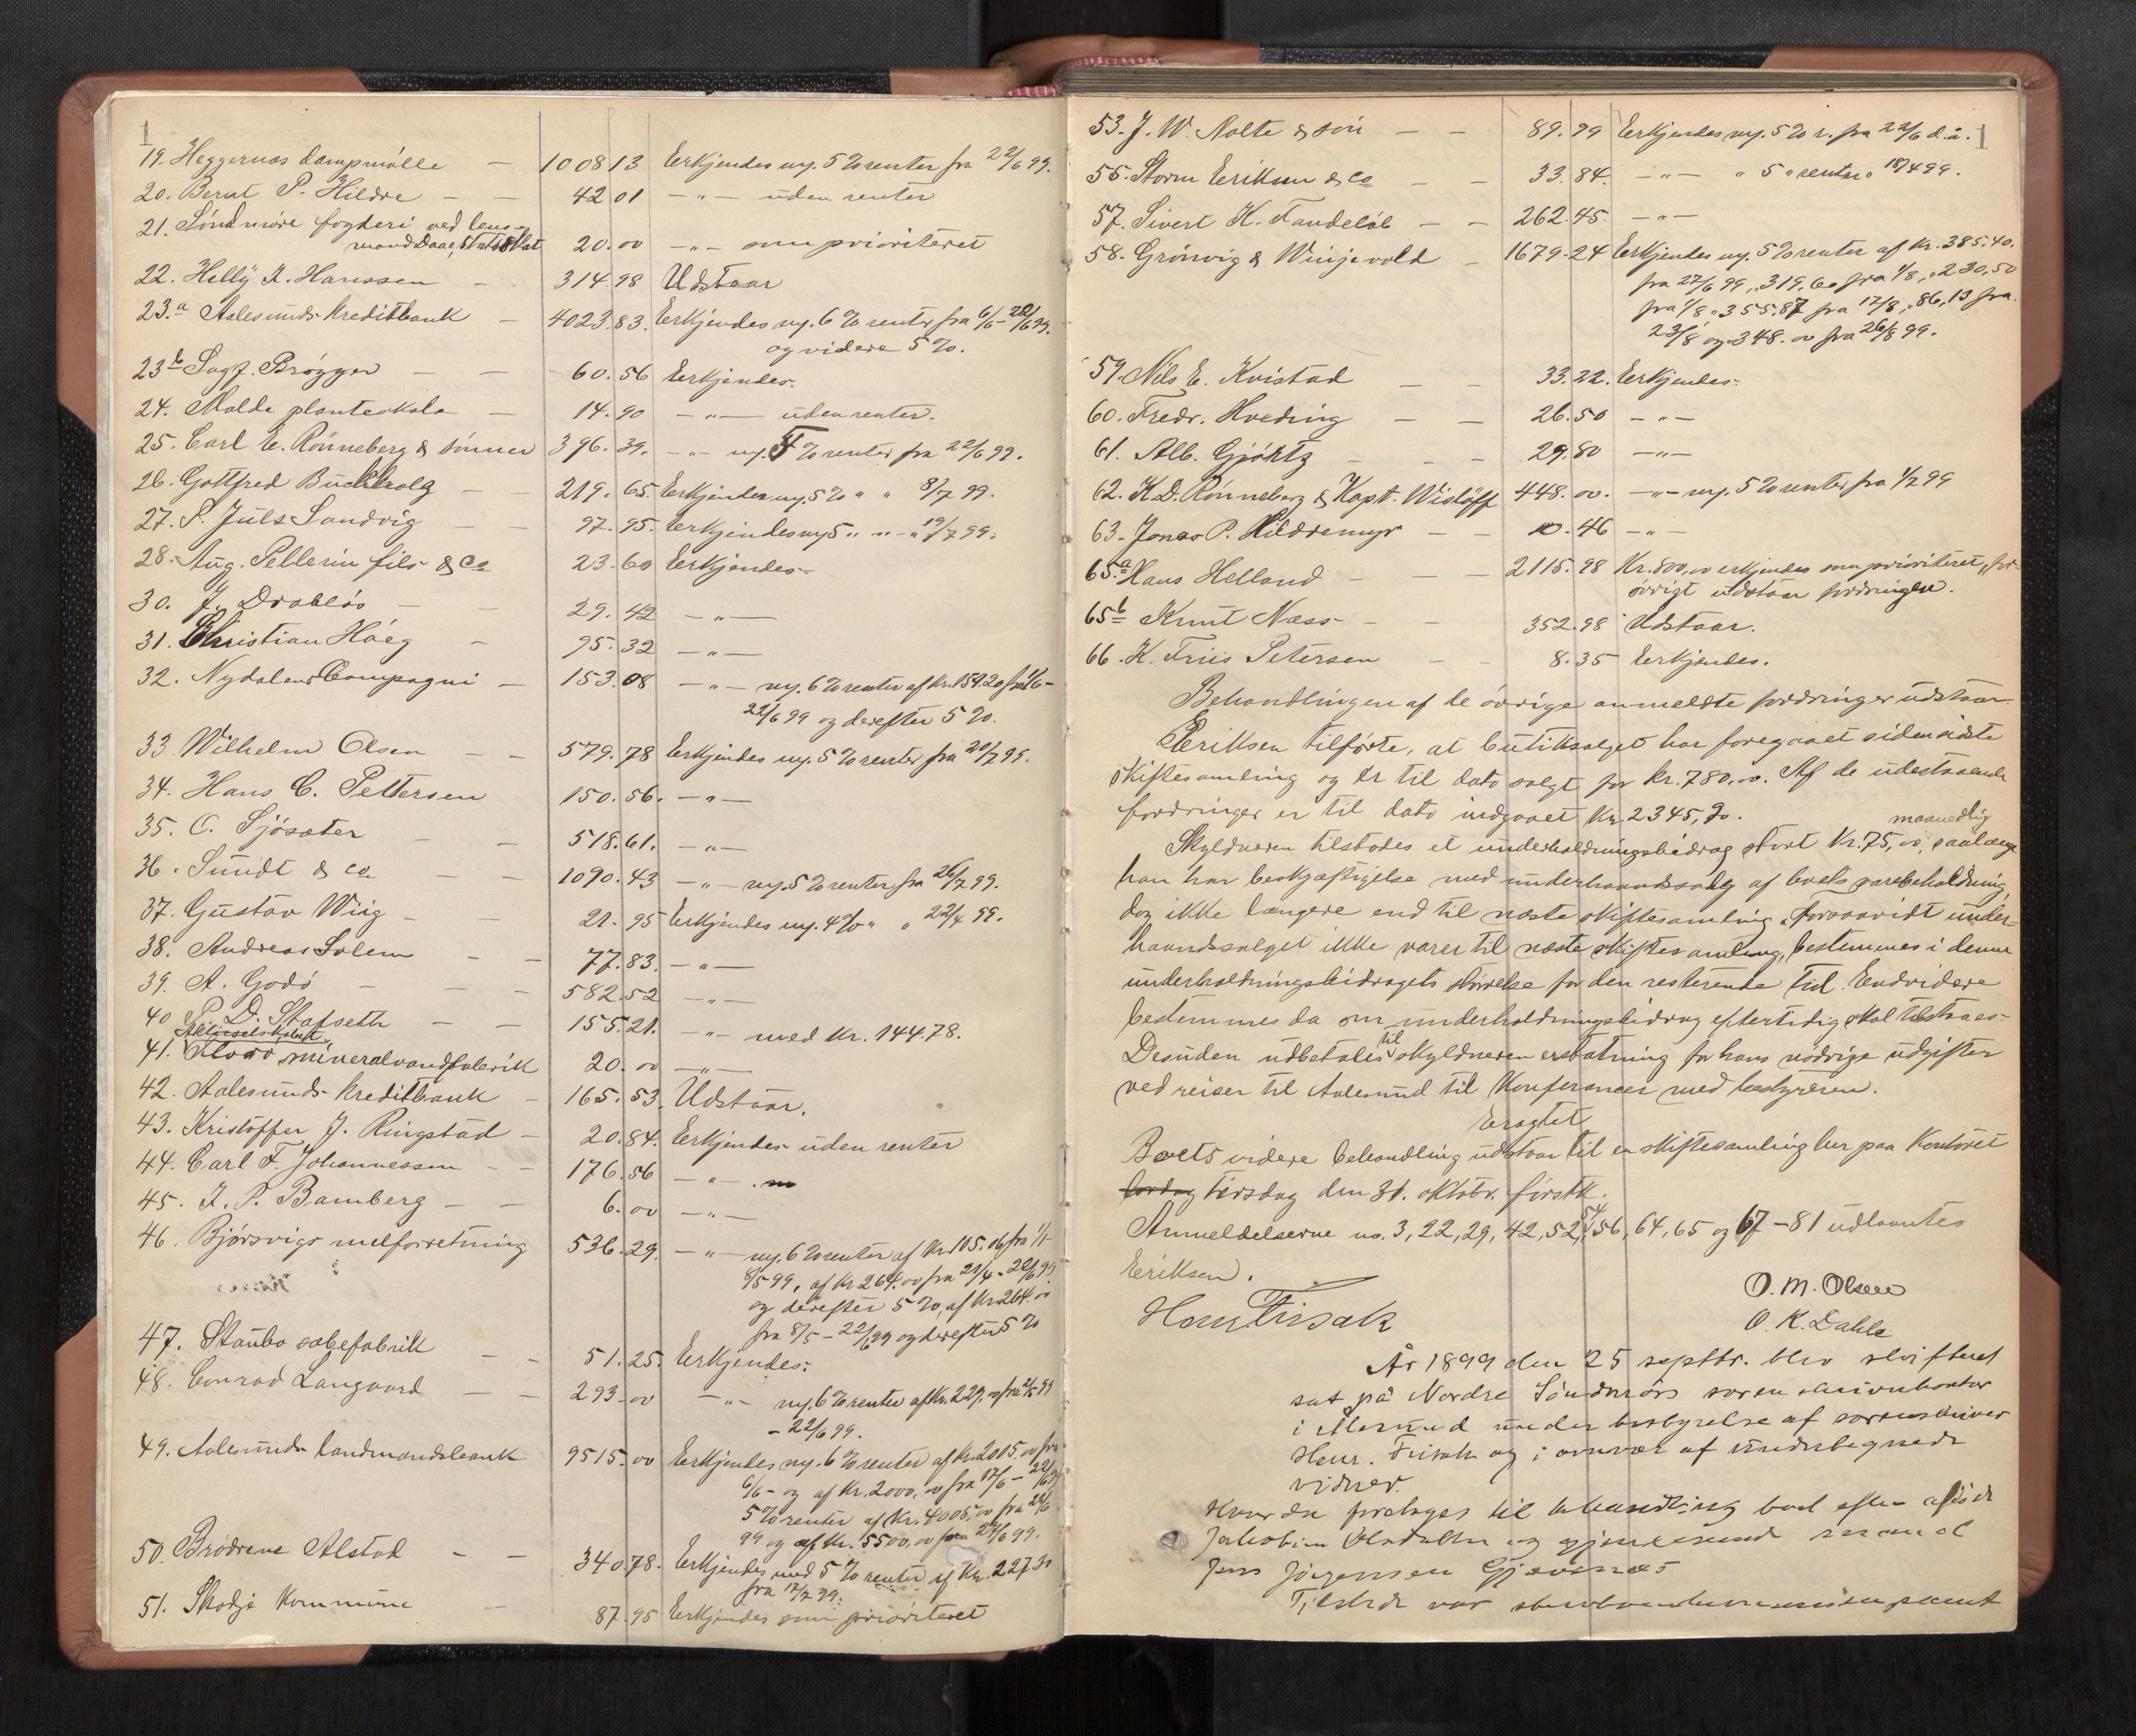 19. Heggernæs dampmølle — 1008 13 Erkjendes m. 5 % renter fra 22/6 99.
20. Bernt P. Hildre — — 42 01 — " — uden renter
21. Søndmøre fogderi ved lens-
mand Daae, Statsskat 20.00 — " — som prioriteret
22. Helly J. Hanssen - 314.98 Udstaar
23.a Aalesunds kreditbank — 4023.83. Erkjendes m. 6 % renter fra 6/6 - 22/6 99.
og videre 5 %.
23b Sagf. Brøgger — — 60.56 Erkjendes.
24. Molde planteskole — 14.90 — " — uden renter.
25. Carl E. Rönneberg & sönner 396.39. — " — m. 5 % renter fra 22/6 99.
26. Gottfred Buchholz — — 219.65. Erkjendes m. 5 % " " 8/7 99.
27. P. Juls Sandvig — — 97.95. Erkjendes m 5 " " " 19/7 99.
28. Aug. Pellerin fils & Co 23.60 Erkjendes
30. J. Drabløs — — 29.42 — " —
31. Christian Höeg — 95.32 — " —
32. Nydalens Compagni — 153.08 — " — m. 6 % renter af kr. 159.20 fra 1/6 -
22/6 99 og derefter 5 %.
33. Wilhelm Olsen — — 579.78 Erkjendes m. 5 % renter fra 20/7 99.
34. Hans C. Pettersen 150.56. — " —
35. O. Sjösæter — — 518.61. — " —
36. Sundt & co. — — 1090.43 — " — m. 5 % renter fra 26/7 99.
37. Gustav Wiig — — 21.95 Erkjendes m. 4 % " " 22/4 99.
38. Andreas Solem — — 77.83. — " —
39. A. Godö — — — 582.52 — " —
40 P. D. Stafseth — — 155.21. — " — med Kr. 144.78.
Aktieselskabet
41. Storö mineralvandfabrik 20.00 — " —
42. Aalesunds kreditbank — 165.53. Udstaar.
43. Kristoffer J. Ringstad — 20.84. Erkjendes uden renter
44. Carl F. Johannessen — — 176.56 — " —
45. J. P. Bamberg — — 6.00 — " —
46. Bjørsvigs melforretning 536.29. — " — m. 6 % renter af kr. 105.06 fra 1/1 -
8/5 99, af kr 264.00 fra 21/4 - 22/6 99
og derefter 5 %, af kr. 264.00
fra 8/5 - 22/6 99 og derefter 5 %
47. Staubo sæbefabrik — — 51.25. Erkjendes.
48. Conrad Langaard — — 293.00 — " — m. 6 % renter af kr. 229.00 fra 2/5 99
- 22/6 99.
49. Aalesunds landmandsbank 9515.00 Erkjendes m. 6 % renter af kr. 2005.00 fra
6/6 - og af kr. 2000,00 fra 17/6 - 22/6 99
5 % renter af kr. 4005,00 fra 22/6
99 og af kr. 5500,00 fra 22/6 99.
50. Brödrene Alstad — — 340 78. Erkjendes med 5 % renter af Kr. 227.30
fra 17/7 99.
51. Skodje kommune — 87.95 Erkjendes som prioriteret
53. J. W. Nolte & sön — — 89.99 Erkjendes m. 5 % r. fra 22/6 d.å.
55. Storm Eriksen & Co — — 33.84. — " — " 5 " renter " 18/4 99.
57. Sivert K. Fandeløb — — 262.45. — " —
58. Grönvig & Wingevold — 1679.24 Erkjendes m. 5 % renter af kr. 385.40.
fra 27/6 99, " 319,60 fra 1/8, " 230,50
fra 1/8 " 355.87 fra 17/8, " 86,13 fra
23/8 og " 348.00 fra 26/8 99.
59. Nils E. Kvistad — — 33.22. Erkjendes.
60. Fredr. Hveding — — 26.50 — " —
61. Alb. Gjörtz — — — 29.80 — " —
62. K. D. Rönneberg & Kapt. Wislöff 448.00. — " — m. 5 % renter fra 1/7 99
63. Jonas P. Hildremyr — — 10.46 — " —
65.a Hans Helland — — — 2115.98 Kr. 800,00 erkjendes som prioriteret, for-
övrigt udstaar fordringen.
65b Knut Næss — — 352.98 Udstaar.
66. K. Friis Petersen — — 8.35 Erkjendes.
Behandlingen af de övrige anmeldte fordringer udstaar.
Eriksen tilförte, at butiksalget har foregaaet siden sidste
skiftesamling og er til dato solgt for kr. 780,00. Af de udestaaende
fordringer er til dato indgaaet kr. 2345,70.
maanedlig
Skyldneren tilstodes et underholdningsbidrag stort kr. 75,00, saalænge
han har beskjæftigelse med underhaandssalg af boets varebeholdning,
dog ikke længere end til næste skiftesamling. Forsaavidt under-
haandssalget ikke varer til næste skiftesamling, bestemmes i denne
underholdningsbidragets störrelse for den resterende tid. Endvidere
bestemmes da om underholdningsbidrag eftertidig skal tilstaaes.
Desuden udbetales til skyldneren erstatning for hans nödvige udgifter
ved reiser til Aalesund til Konferancer med bestyreren.
Eragtet
Boets videre behandling udstaar til en skiftesamling her paa Kontoret
lördag tirsdag den 31. oktobr. förstk.
Anmeldelserne no. 3, 22, 29, 42, 52, 54, 56, 64, 65 og 67 - 81 udlaantes
Eriksen.
Henr Frisak
O. M. Olsen
O. K. Dahle
År 1899 den 25 septbr. blev skifteret
sat på Nordre Söndmörs sorenskriverkontor
i Ålesund under bestyrelse af sorenskriver
Henr. Frisak og i overvær af undertegnede
vidner.
Hvor da foretoges til behandling boet efter afdöde
Jakobine Olsdatter og gjenlevende mand
Jens Jörgensen Gjævenes
Tilstede var